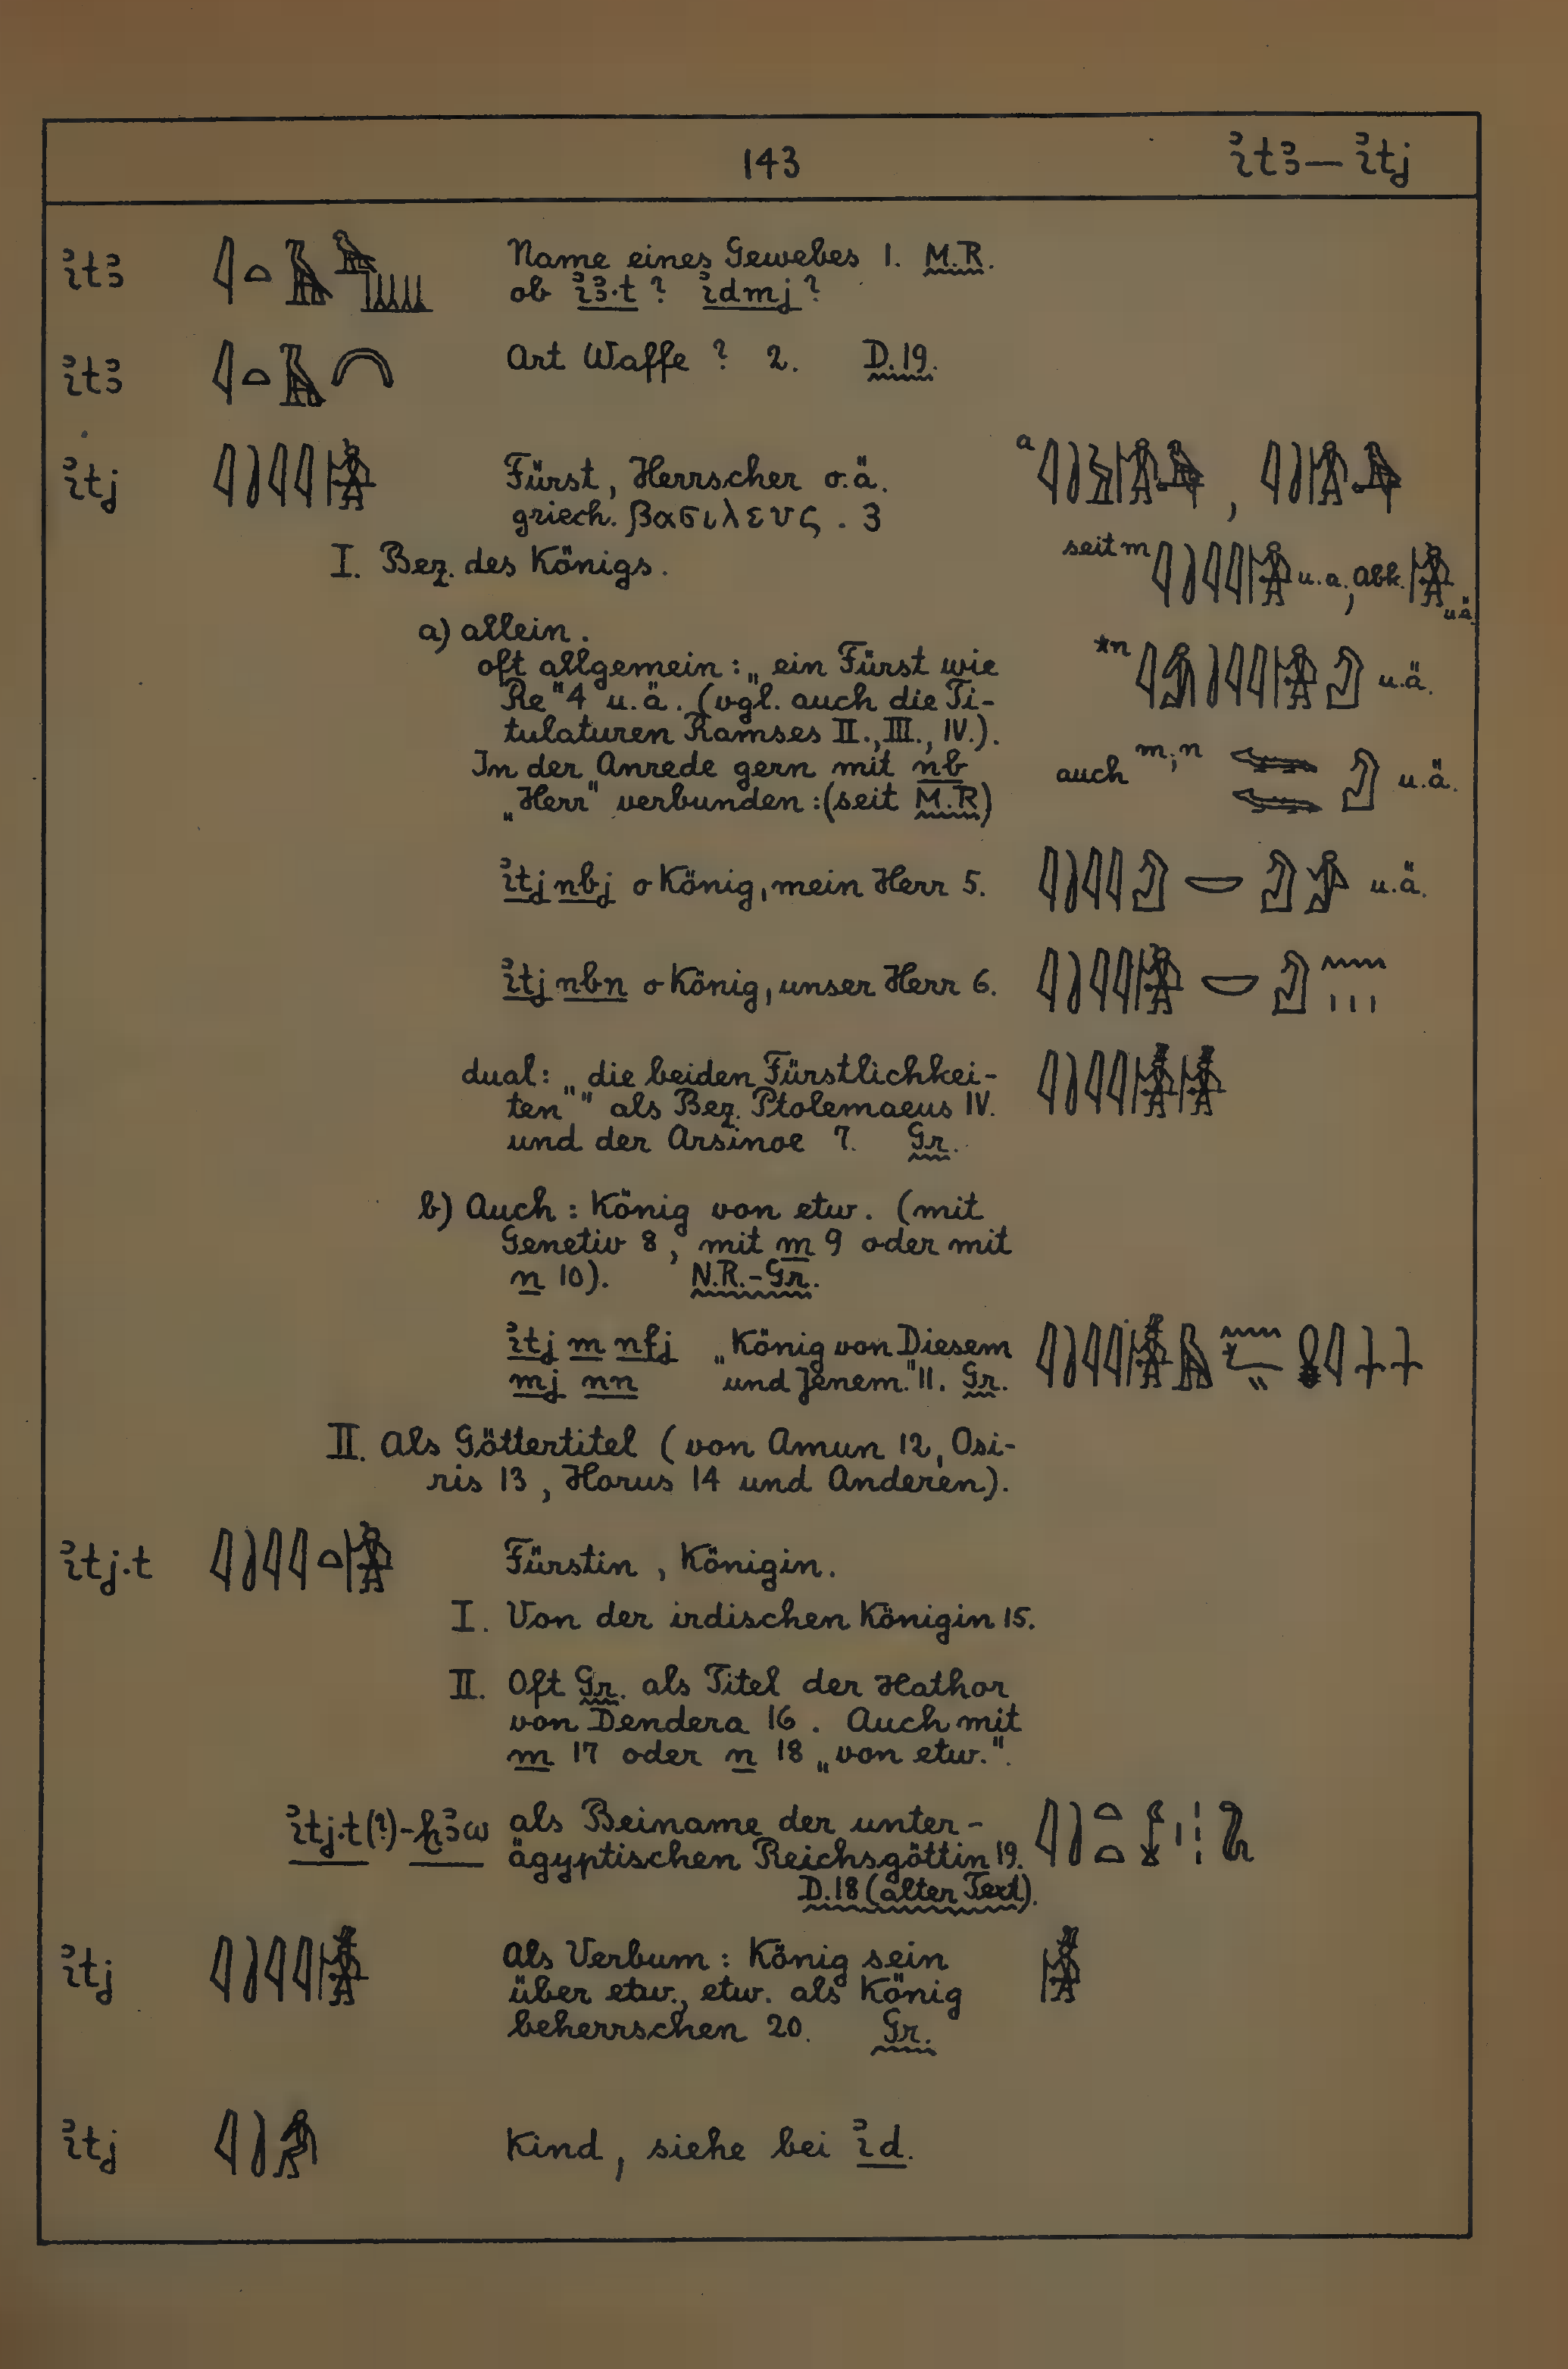 143 ı͗tꜣ — ı͗tj
ı͗tꜣ Name eines Gewebes 1. M.R.
ob ı͗ꜣ.t ? ı͗dmj ?
ı͗tꜣ Art Waffe ? 2. D.19.
ı͗tj Fürst, Herrscher o.ä. a ,
griech. βασιλευς . 3
I. Bez. des Königs. seit m u.a., Abk. u.ä.
a) allein.
oft allgemein: „ein Fürst wie *n u.ä.
Re" 4 u.ä. (vgl. auch die Ti-
tulaturen Ramses II., III., IV.).
In der Anrede gern mit nb auch m,n u.ä.
„Herr" verbunden: (seit M.R)
ı͗tj nbj o König, mein Herr 5. u.ä.
ı͗tj nbn o König, unser Herr 6.
dual: „die beiden Fürstlichkei-
ten" " als Bez. Ptolemaeus IV.
und der Arsinoe 7. Gr.
b) Auch: König von etw. (mit
Genetiv 8, mit m 9 oder mit
n 10). N.R.-Gr.
ı͗tj m nfj „König von Diesem
mj nn und Jenem." 11. Gr.
II. Als Göttertitel (von Amun 12, Osi-
ris 13, Horus 14 und Anderen).
ı͗tj.t Fürstin, Königin.
I. Von der irdischen Königin 15.
II. Oft Gr. als Titel der Hathor
von Dendera 16. Auch mit
m 17 oder n 18 „von etw.".
ı͗tj.t(?)-ḫꜣw als Beiname der unter-
ägyptischen Reichsgöttin 19.
D.18 (alter Text).
ı͗tj Als Verbum: König sein
über etw., etw. als König
beherrschen 20. Gr.
ı͗tj Kind, siehe bei ı͗d.